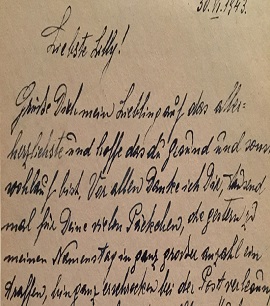 30.VI.1943.
Liebste Lilly!
Grüße Dich mein Liebling auf das aller-
herzlichste und hoffe das du gesund und sonst
wohlauf bist. Vor allen Danke ich Dir, tausend
mal für Deine vielen Päckchen, die gestern zu
meinen Namenstag in ganz großer anzahl ein
traffen, bin ganz erschrocken bei der Post